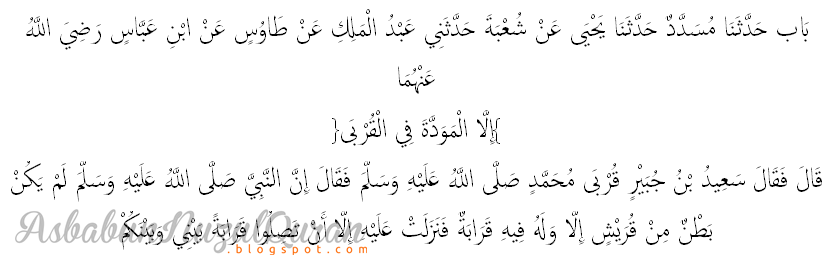 بَاب حَدَّثَنَا مُسَدَّدٌ حَدَّثَنَا يَحْيَى عَنْ شُعْبَةَ حَدَّثَنِي عَبْدُ الْمَلِكِ عَنْ طَاوُسٍ عَنْ ابْنِ عَبَّاسٍ رَضِيَ اللَّهُ
عَنْهُمَا
}إِلَّا الْمَوَدَّةَ فِي الْقُرْبَى{
قَالَ فَقَالَ سَعِيدُ بْنُ جُبَيْرٍ قُرْبَى مُحَمَّدٍ صَلَّى اللَّهُ عَلَيْهِ وَسَلَّمَ فَقَالَ إِنَّ النَّبِيَّ صَلَّى اللَّهُ عَلَيْهِ وَسَلَّمَ لَمْ يَكُنْ
بَطْنٌ مِنْ قُرَيْشٍ إِلَّا وَلَهُ فِيهِ قَرَابَةٌ فَنَزَلَتْ عَلَيْهِ إِلَّا أَنْ تَصِلُوا قَرَابَةً بَيْنِي وَبَيْنَكُمْ
AsbabunNuzulQuran
.blogspot.com